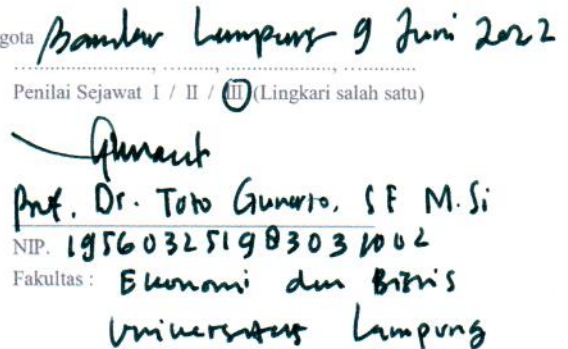 gota Bandar Lampung 9 Juni 2022
Penilai Sejawat I / II / III (Lingkari salah satu)
Prof. Dr. Toto Gunarto, SE M.Si
NIP. 195603251983031002
Fakultas : Ekonomi dan Bisnis
Universitas Lampung